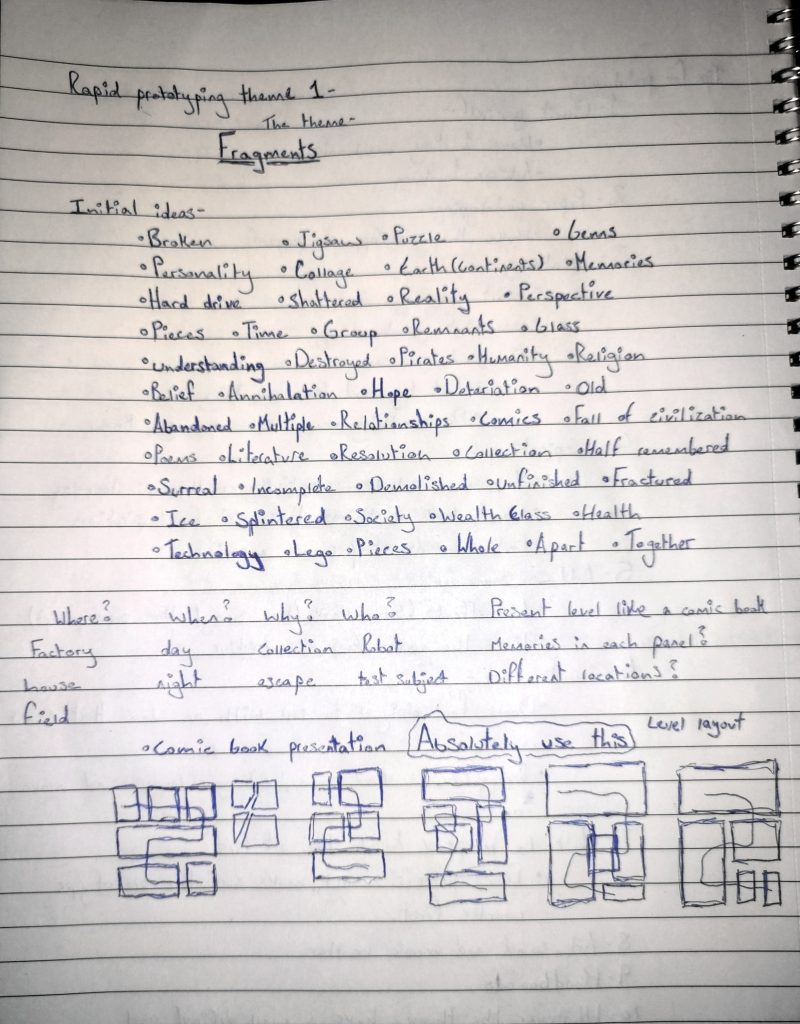 Rapid prototyping theme 1-
The theme-
Fragments
Initial ideas-
•Broken •Jigsaws •Puzzle •Gems
•Personality •Collage •Earth (Continents) •Memories
•Hard drive •Shattered •Reality •Perspective
•Pieces •Time •Group •Remnants •Glass
•understanding •Destroyed •Pirates •Humanity •Religion
•Belief •Annihalation •Hope •Detariation •Old
•Abandoned •Multiple •Relationships •Comics •Fall of civilization
•Poems •Literature •Resolution •Collection •Half remembered
•Surreal •Incomplete •Demolished •unfinished •Fractured
•Ice •Splintered •Society •Wealth Class •Health
•Technology •Lego •Pieces •Whole •Apart •Together
Where? When? Why? Who? Present level like a comic book
Factory day Collection Robot Memories in each panel?
house night escape test subject Different locations?
Field
•Comic book presentation Absolutely use this Level layout